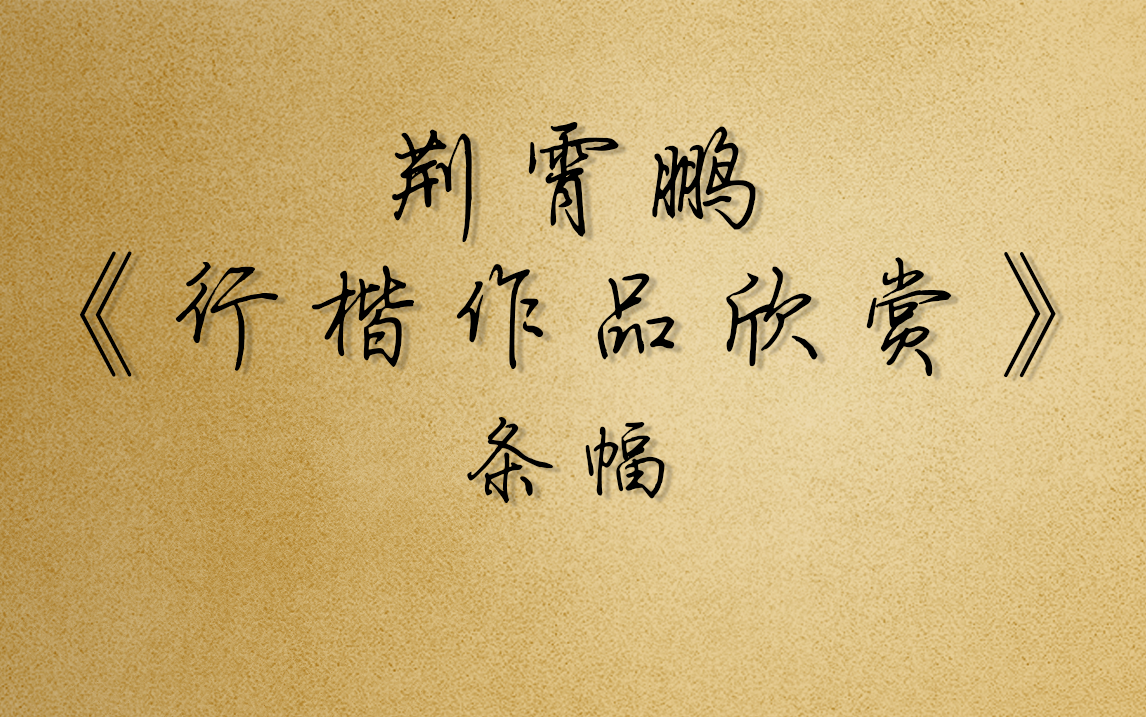 荆霄鹏
《行楷作品欣赏》
条幅